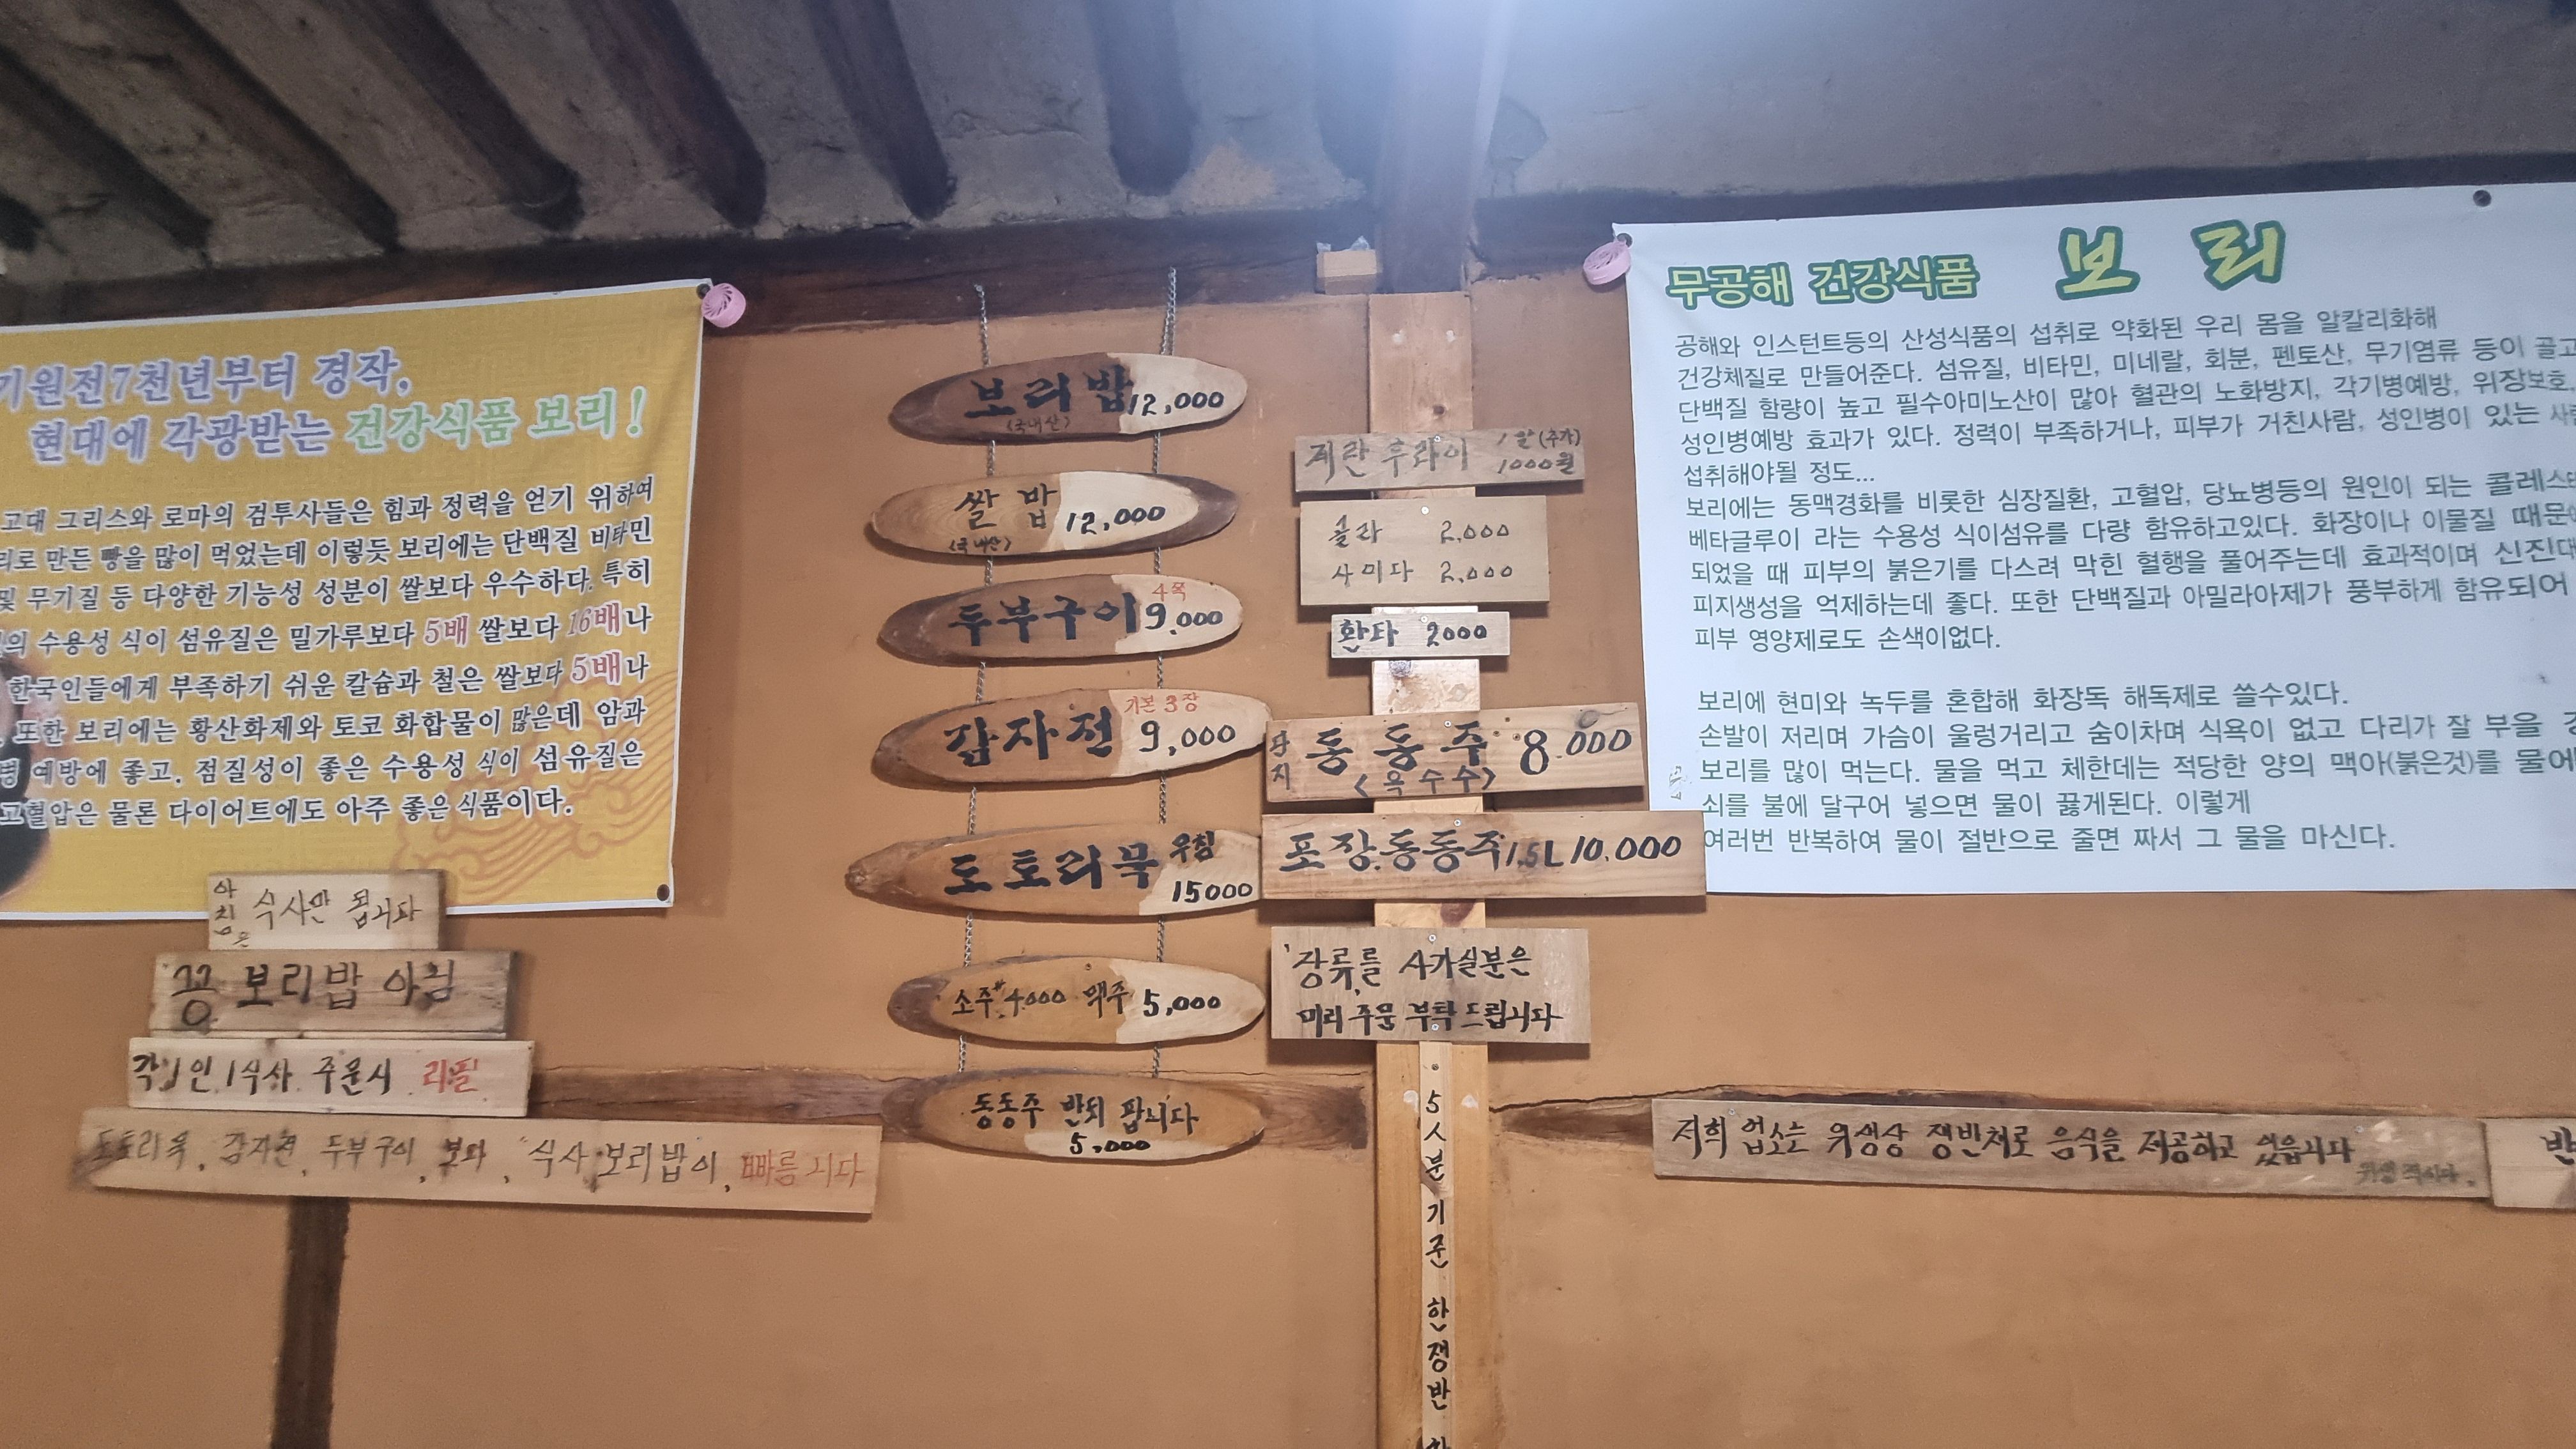 기원전7천년부터 경작,
현대에 각광받는 건강식품 보리!
고대 그리스와 로마의 검투사들은 힘과 정력을 얻기 위하여
리로 만든 빵을 많이 먹었는데 이렇듯 보리에는 단백질 비타민
및 무기질 등 다양한 기능성 성분이 쌀보다 우수하다. 특히
의 수용성 식이 섬유질은 밀가루보다 5배 쌀보다 16배나
한국인들에게 부족하기 쉬운 칼슘과 철은 쌀보다 5배나
또한 보리에는 황산화제와 토코 화합물이 많은데 암과
병 예방에 좋고, 점질성이 좋은 수용성 식이 섬유질은
고혈압은 물론 다이어트에도 아주 좋은 식품이다.
아침은 식사만 됩니다
꽁 보리밥 아님
각 1인 1식사 주문시 리필
도토리묵, 감자전, 두부구이, 보다, 식사 보리밥이, 빠릅니다
보리밥 12,000
<국내산>
쌀밥 12,000
<국내산>
4쪽
두부구이 9,000
기본 3장
감자전 9,000
도토리묵 무침
15000
소주 4000 맥주 5,000
동동주 반되 팝니다
5,000
계란 후라이 1알(추가)
1000원
콜라 2,000
사이다 2,000
환타 2000
단지 동동주 8.000
<옥수수>
포장.동동주 1.5L 10.000
장류를 사가실분은
미리 주문 부탁드립니다
5人분기준 한쟁반
무공해 건강식품 보리
공해와 인스턴트등의 산성식품의 섭취로 약화된 우리 몸을 알칼리화해
건강체질로 만들어준다. 섬유질, 비타민, 미네랄, 회분, 펜토산, 무기염류 등이 골고
단백질 함량이 높고 필수아미노산이 많아 혈관의 노화방지, 각기병예방, 위장보호,
성인병예방 효과가 있다. 정력이 부족하거나, 피부가 거친사람, 성인병이 있는 사람
섭취해야될 정도...
보리에는 동맥경화를 비롯한 심장질환, 고혈압, 당뇨병등의 원인이 되는 콜레스테
베타글루이 라는 수용성 식이섬유를 다량 함유하고있다. 화장이나 이물질 때문에
되었을 때 피부의 붉은기를 다스려 막힌 혈행을 풀어주는데 효과적이며 신진대
피지생성을 억제하는데 좋다. 또한 단백질과 아밀라아제가 풍부하게 함유되어
피부 영양제로도 손색이없다.
보리에 현미와 녹두를 혼합해 화장독 해독제로 쓸수있다.
손발이 저리며 가슴이 울렁거리고 숨이차며 식욕이 없고 다리가 잘 부을
보리를 많이 먹는다. 물을 먹고 체한데는 적당한 양의 맥아(붉은것)를 물에
쇠를 불에 달구어 넣으면 물이 끓게된다. 이렇게
여러번 반복하여 물이 절반으로 줄면 짜서 그 물을 마신다.
저희 업소는 위생상 쟁반채로 음식을 제공하고 있읍니다
반